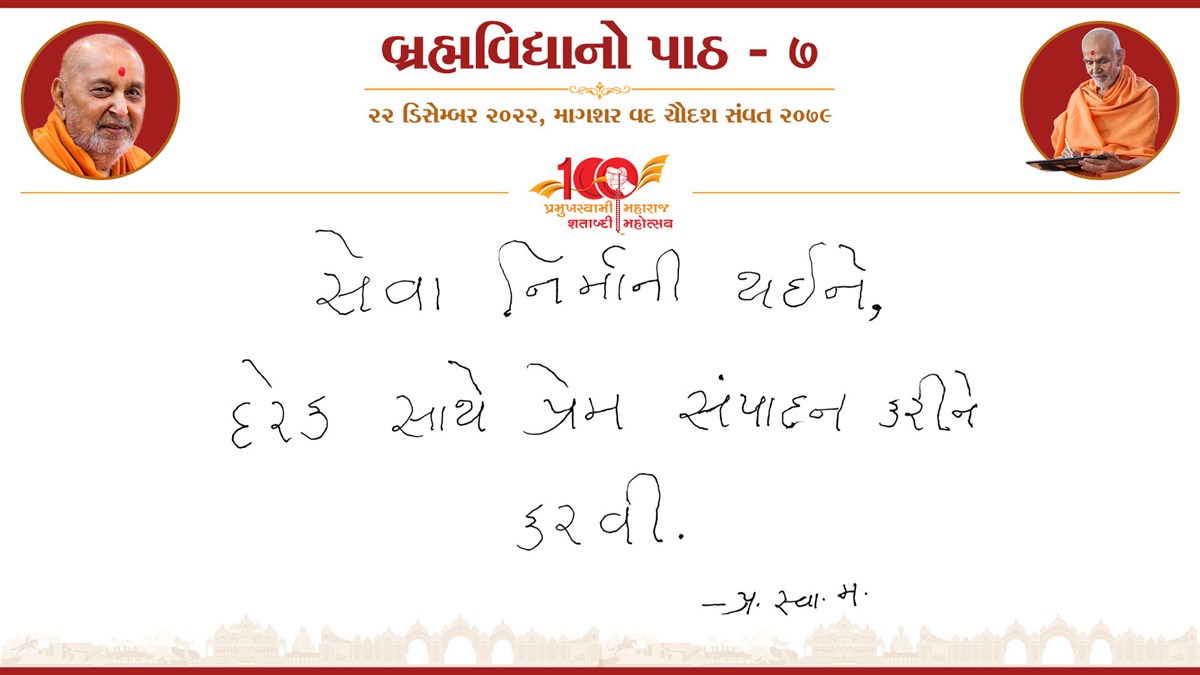 બ્રહ્મવિદ્યાનો પાઠ - ૭
૨૨ ડિસેમ્બર ૨૦૨૨, માગશર વદ ચૌદશ સંવત ૨૦૭૯
100
પ્રમુખસ્વામી મહારાજ
શતાબ્દી મહોત્સવ
સેવા નિર્માની થઈને,
દરેક સાથે પ્રેમ સંપાદન કરીને
કરવી.
- પ્ર. સ્વા. મ.